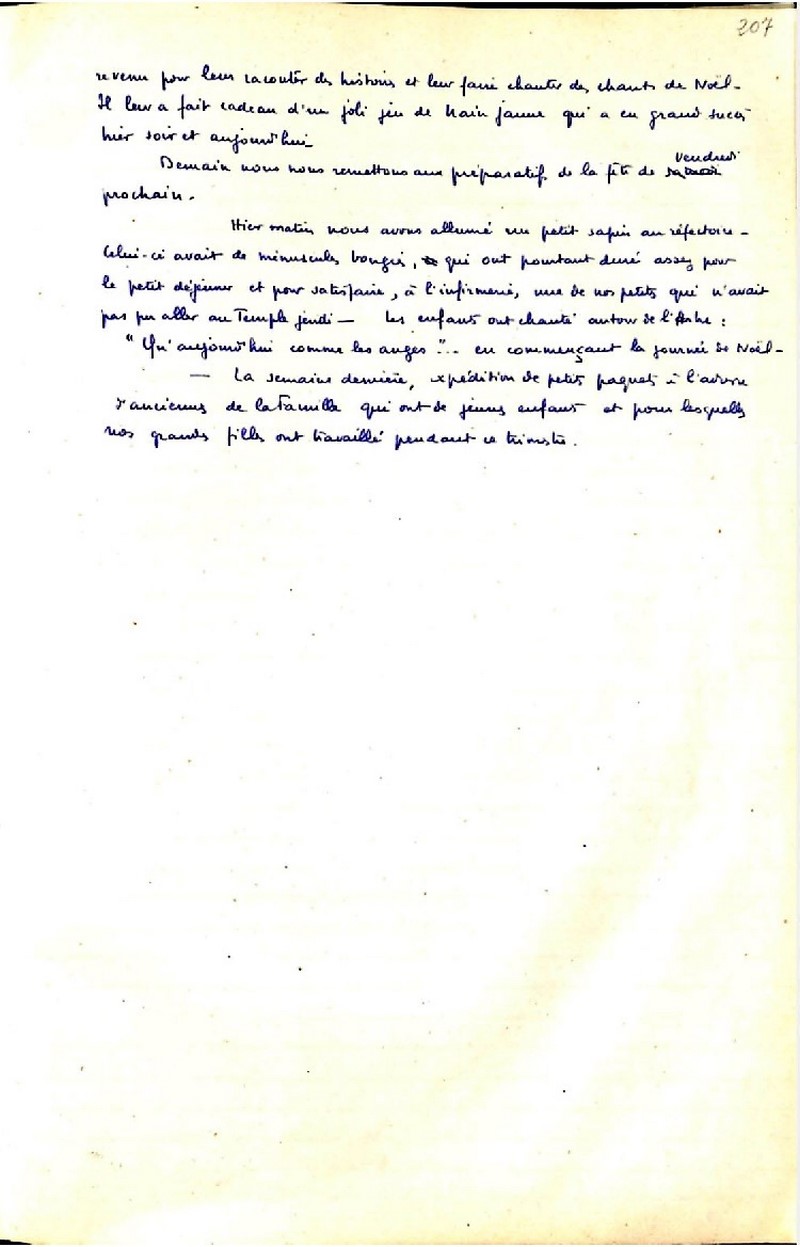 207
revenu pour leur raconter des histoires et leur faire chanter des chants de Noël -
Il leur a fait cadeau d'un joli jeu de Nain jaune qui a eu grand succès
hier soir et aujourd'hui -
vendredi
Demain nous nous remettons aux préparatifs de la fête de samedi
prochain.
Hier matin nous avons allumé un petit sapin au réfectoire -
Celui-ci avait de minuscules bougies, qui ont pourtant duré assez pour
le petit déjeuner et pour satisfaire, à l'infirmerie, une de nos petits qui n'avait
pas pu aller au Temple jeudi — Les enfants ont chanté autour de l'Arbre :
"Qu'aujourd'hui comme les anges"... en commençant la journée de Noël -
— La semaine dernière, expédition de petits paquets à l'adresse
d'anciennes de la Famille qui ont de jeunes enfants et pour lesquelles
nos grandes filles ont travaillé pendant ce trimestre.